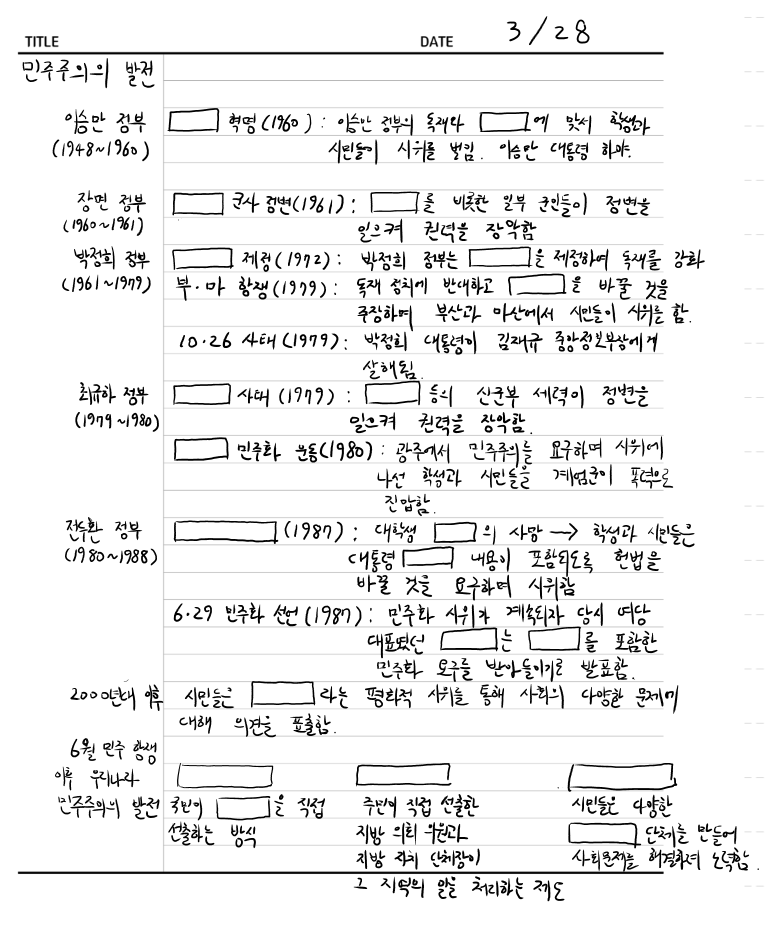 TITLE DATE 3/28
민주주의의 발전
이승만 정부 혁명(1960) : 이승만 정부의 독재와 에 맞서 학생과
(1948~1960) 시민들이 시위를 벌임. 이승만 대통령 하야.
장면 정부 군사 정변(1961) : 를 비롯한 일부 군인들이 정변을
(1960~1961) 일으켜 권력을 장악함
박정희 정부 제정(1972) : 박정희 정부는 을 제정하여 독재를 강화
(1961~1979) 부·마 항쟁(1979) : 독재 정치에 반대하고 을 바꿀 것을
주장하며 부산과 마산에서 시민들이 시위를 함.
10·26 사태(1979) : 박정희 대통령이 김재규 중앙정보부장에게
살해됨.
최규하 정부 사태(1979) : 등의 신군부 세력이 정변을
(1979~1980) 일으켜 권력을 장악함.
민주화 운동(1980) : 광주에서 민주주의를 요구하며 시위에
나선 학생과 시민들을 계엄군이 폭력으로
진압함.
전두환 정부 (1987) : 대학생 의 사망 → 학생과 시민들은
(1980~1988) 대통령 내용이 포함되도록 헌법을
바꿀 것을 요구하며 시위함
6·29 민주화 선언(1987) : 민주화 시위가 계속되자 당시 여당
대표였던 는 를 포함한
민주화 요구를 받아들이기로 발표함.
2000년대 이후 시민들은 라는 평화적 시위를 통해 사회의 다양한 문제에
대해 의견을 표출함.
6월 민주 항쟁
이후 우리나라
민주주의의 발전 국민이 을 직접 주민이 직접 선출한 시민들은 다양한
선출하는 방식 지방 의회 의원과 단체를 만들어
지방 자치 단체장이 사회문제를 해결하려 노력함.
그 지역의 일을 처리하는 제도